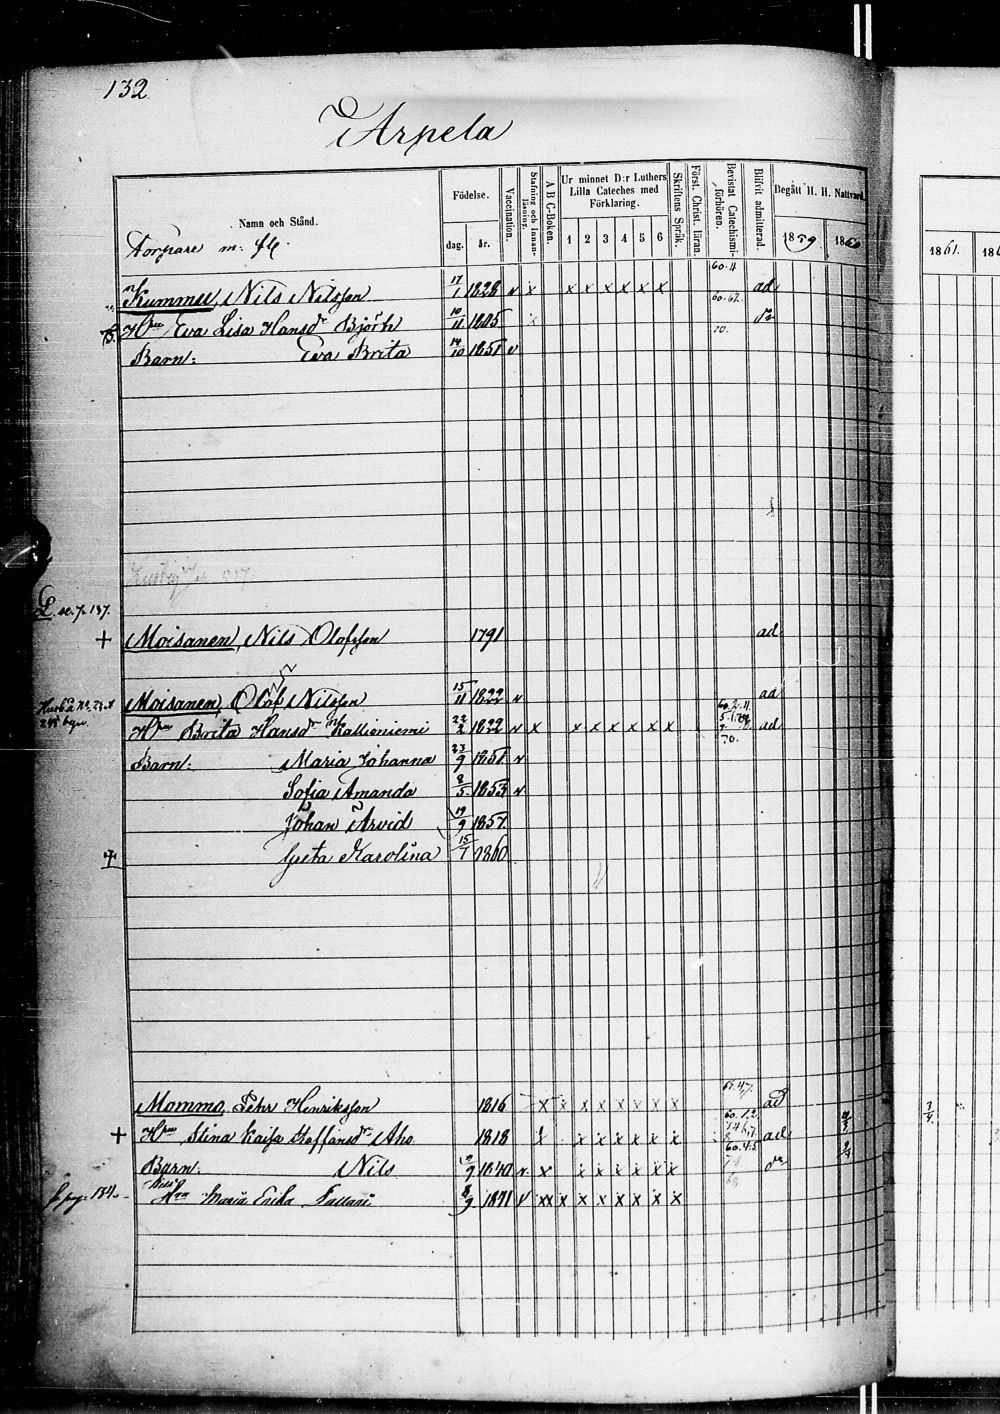 132.
Arpela
Namn och Stånd.
Torpare m. fl.
Födelse.
dag.
år.
Vaccination.
Stafning och Innanläsning.
A B C-Boken.
Ur minnet D:r Luthers Lilla Cateches med Förklaring.
1 2 3 4 5 6
Skriftens Språk.
Först. Christ. läran.
Bevistat Catechismiförhören.
Blifvit admitterad.
Begått H. H. Nattvard.
1859
1860
1861.
Kummu, Nils Nilsson 17/1 1828 v x x x x x x x 60.4 ad
Hu Eva Lisa Hansdr Björk 10/11 1805 x 60.62. 70. dr
Barn: Eva Brita 14/10 1851 v
L. se. p. 137.
+ Moisanen, Nils Olofsson 1791 ad
Moisanen, Olof Nilsson 15/11 1822 v ad
Hu Brita Hansdr Kallioniemi 22/2 1822 v x x x x x x x 70. ad
Barn: Maria Johanna 23/9 1851 v
Sofia Amanda 8/5 1853 v
Johan Arvid 19/9 1857
+ Greta Karolina 15/1 1860
Mommo, Pehr Henriksson 1816 x x x x x x x x 65.47. ad
+ Hu Stina Kaisa Staffansdr Aho 1818 x x x x x x x 60.1.2. ad
Barn: Nils 2/9 1840 v. x x x x x x x 60.4.5. 68 dr
pag. 134. Nils Hu Maria Erika Tallari 8/9 1871 v xx x x x x x x x